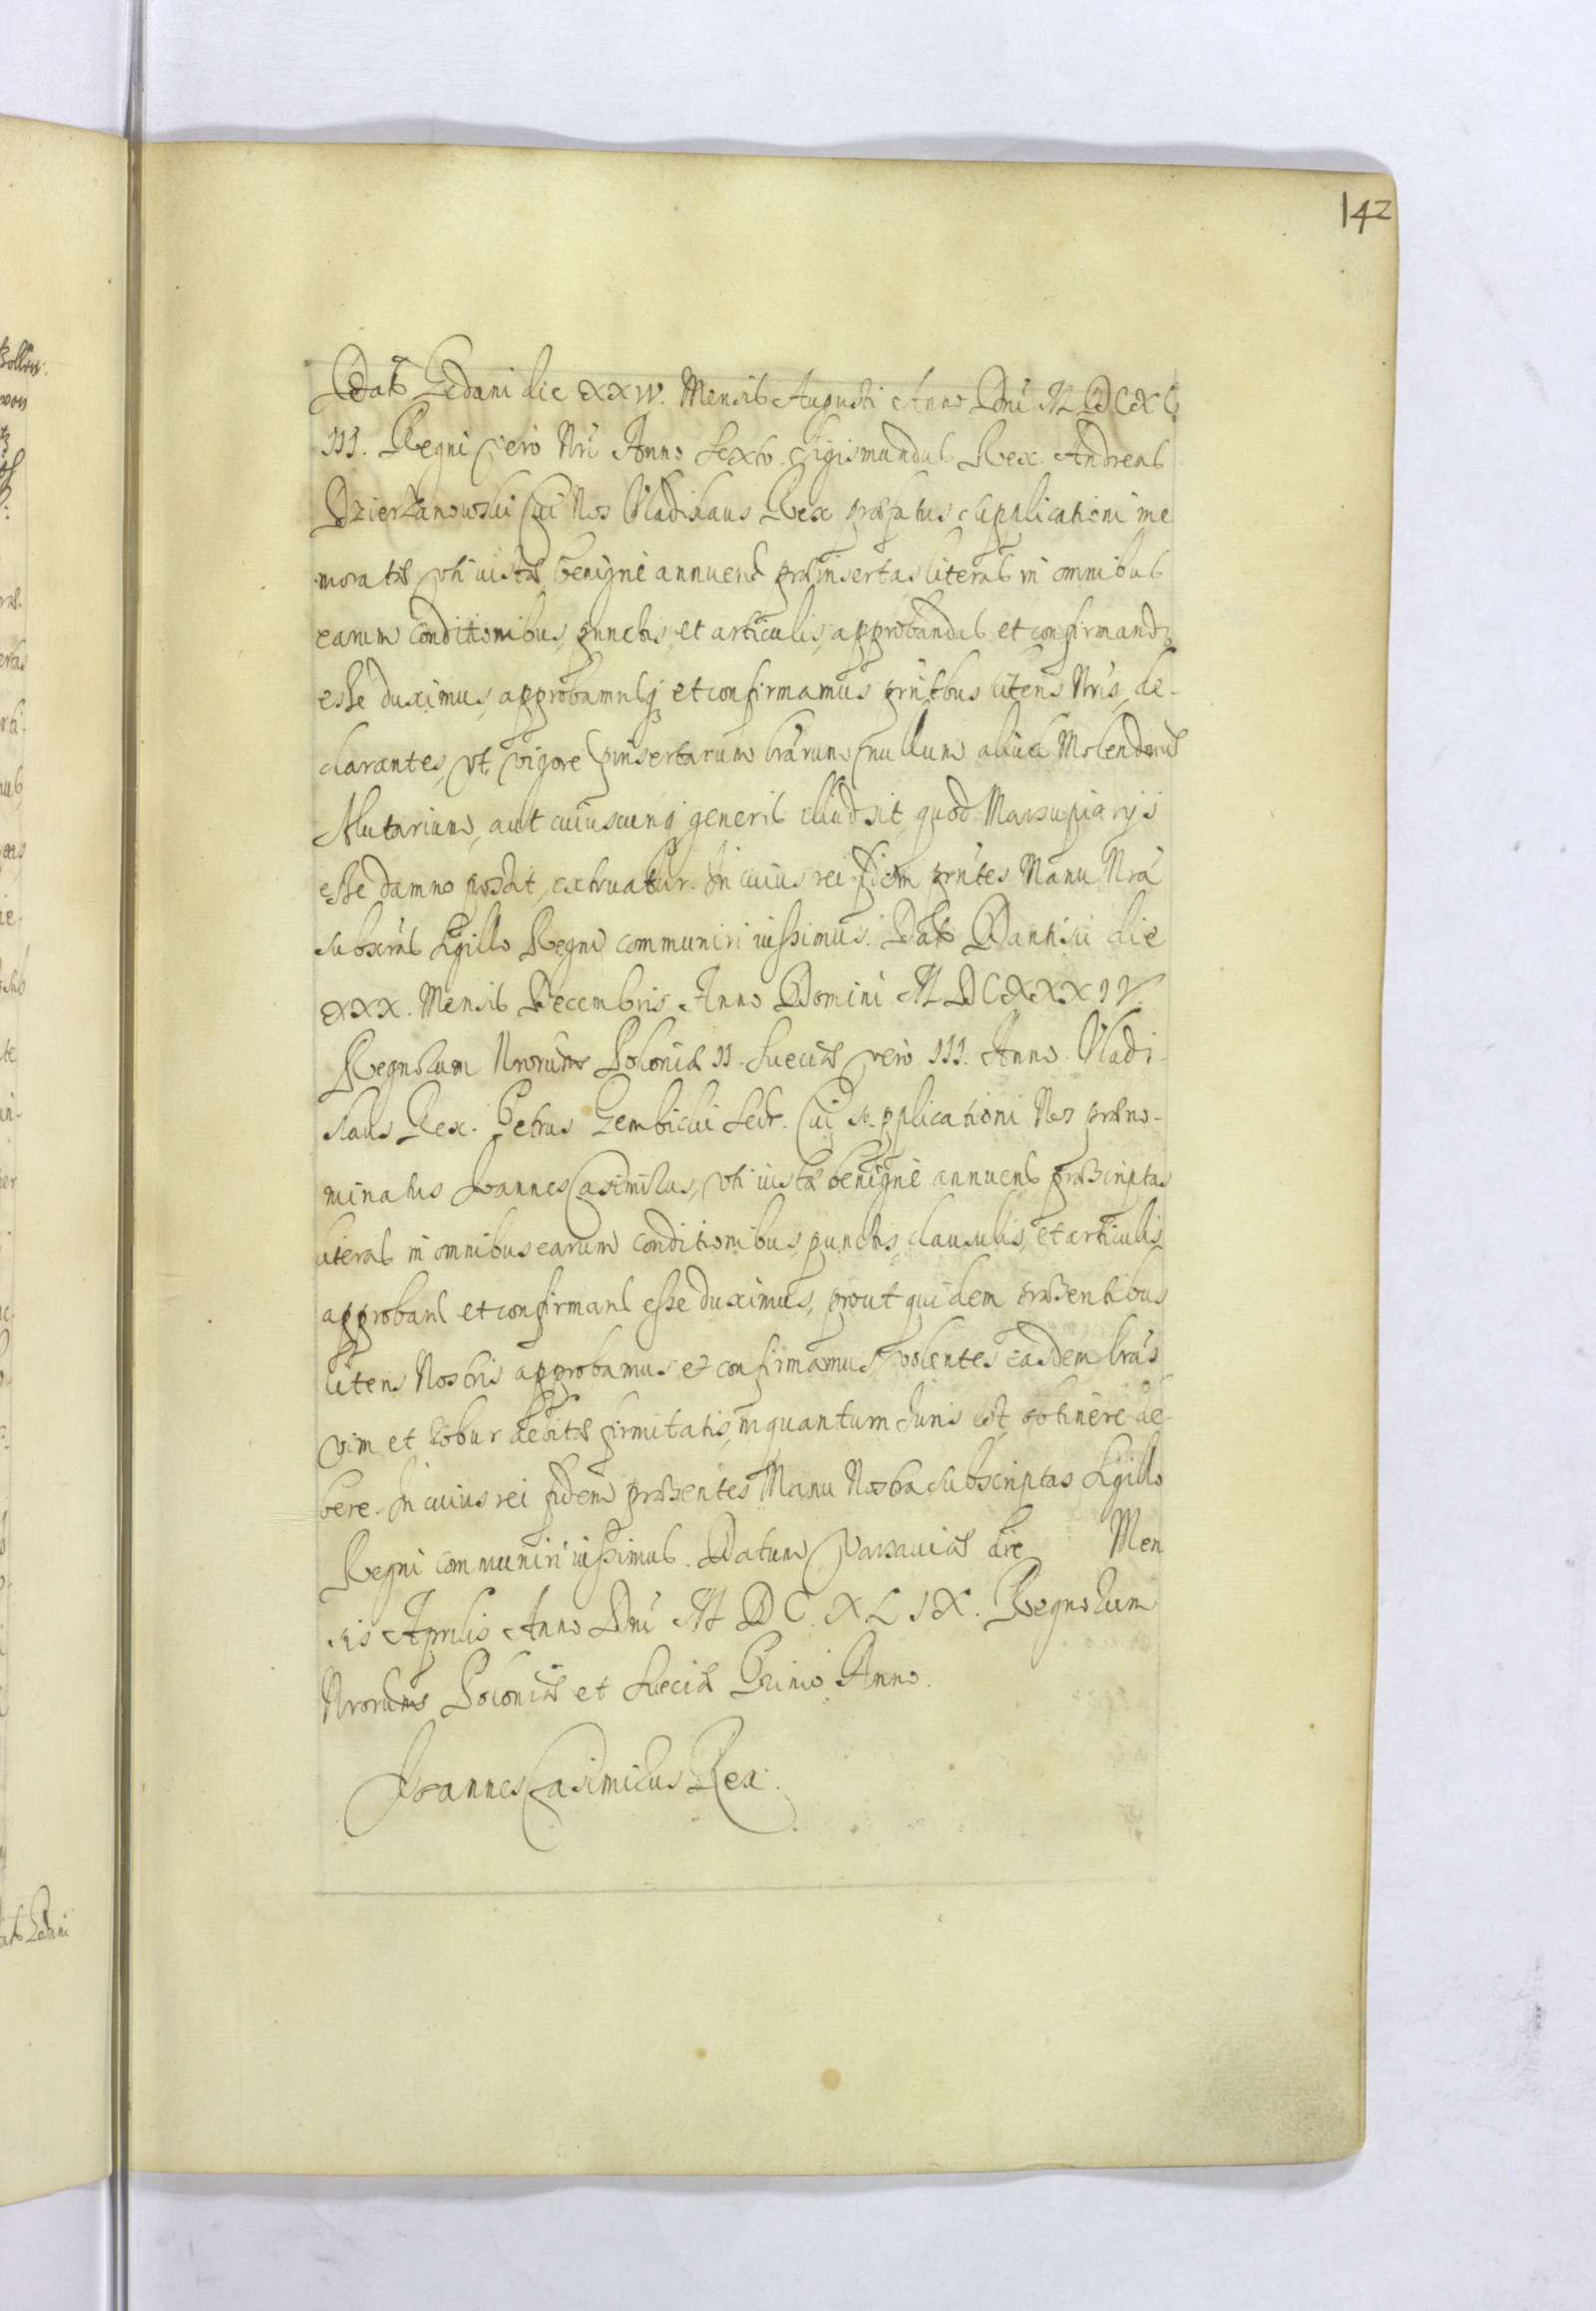 142
Dat Gedani die XXIV. Mensis Augusti Anno Dni M D XC
III. Regni vero Nri Anno Sexto. Sigismundus Rex. Andreas
Dzierzanowski Cui Nos Vladislaus Rex præfatus supplicationi me
moratæ uti iustæ benigne annuend præinsertas literas in omnibus
earum Conditionibus, punctis, et articulis, approbandas et confirmand
esse duximus, approbamusq et confirmamus prntibus literis Nris, de-
clarantes, vt vigore prinsertarum lrarum nullum aliud Molendinũ
Alutarium, aut cuiuscunq generis illud sit, quod Marsupiarijs
esse damno possit, extruatur. In cuius rei fidem prntes Manu Nrá
subscras Sigillo Regni communiri iussimus. Dat Dantisci die
XXX. Mensis Decembris Anno Domini M D C XXX IV.
Regnorum Nrorum Poloniæ II. Sueciæ vero III. Anno. Vladi-
slaus Rex. Petrus Gembicki Secr. Cui supplicationi Nos præno-
minatus Joannes Casimirus, vti iustæ benigne annuens præscriptas
literas in omnibus earum conditionibus, punctis, clausulis, et articulis
approband et confirmand esse duximus, prout quidem præsentibus
literis Nostris approbamus et confirmamus, volentes easdem lras
vim et robur debitæ firmitatis, inquantum Juris est, obtinere de-
bere. In cuius rei fidem præsentes Manu Nostra subscriptas Sigillo
Regni communiri iussimus. Datum Varsaviæ die Men
sis Aprilis Anno Dni M D C XL IX. Regnorum
Nrorum Poloniæ et Sueciæ Primo Anno.
Joannes Casimirus Rex.